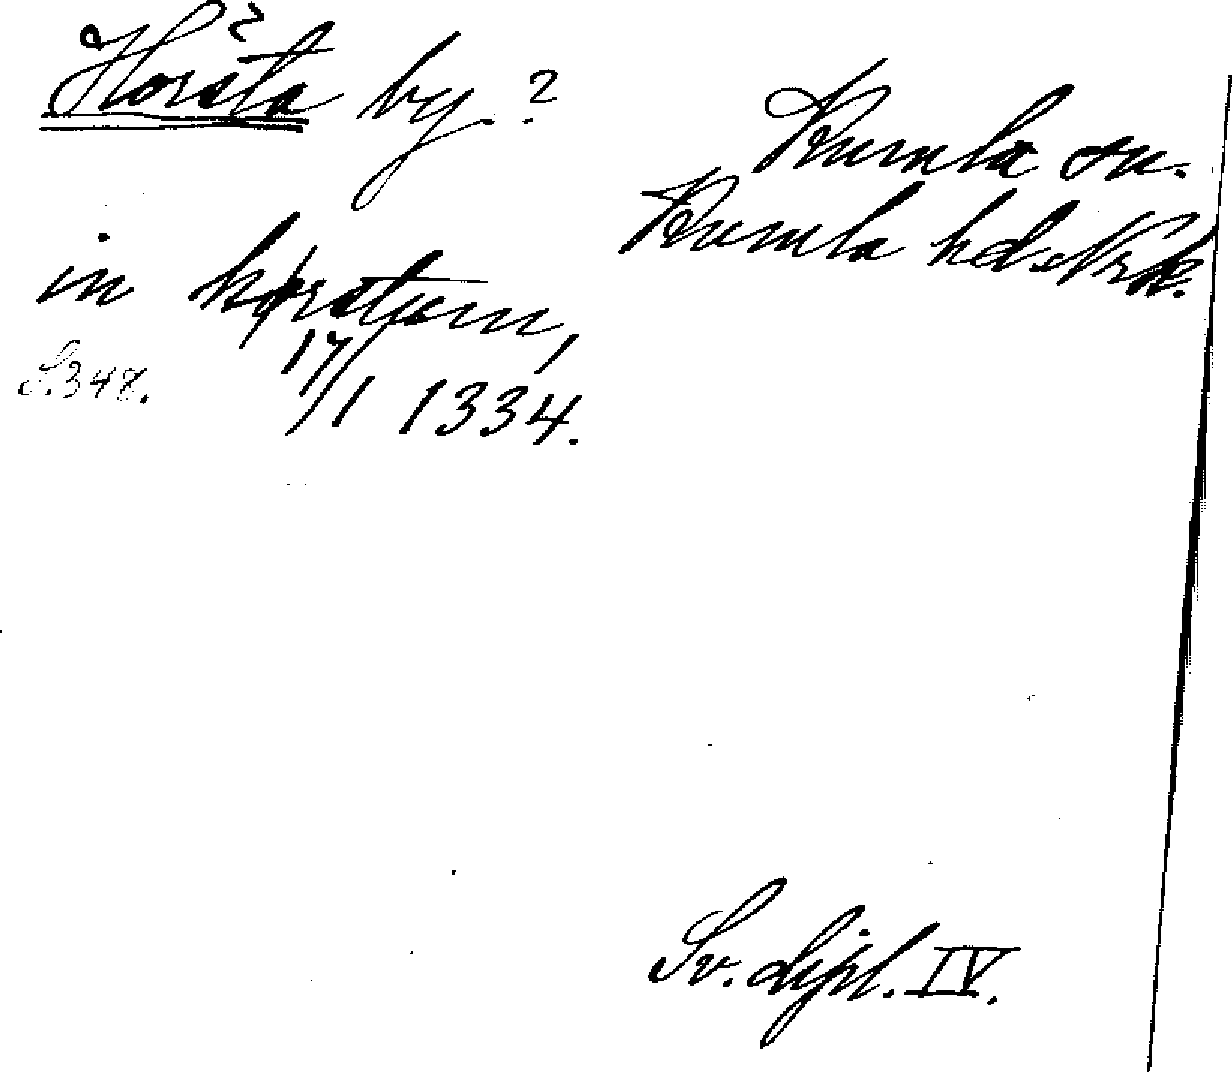 Horsta by?
Kumla sn.
Kumla hd. Nrk.
in hørstum,
S. 348.
17/1 1334.
Sv. dipl. IV.